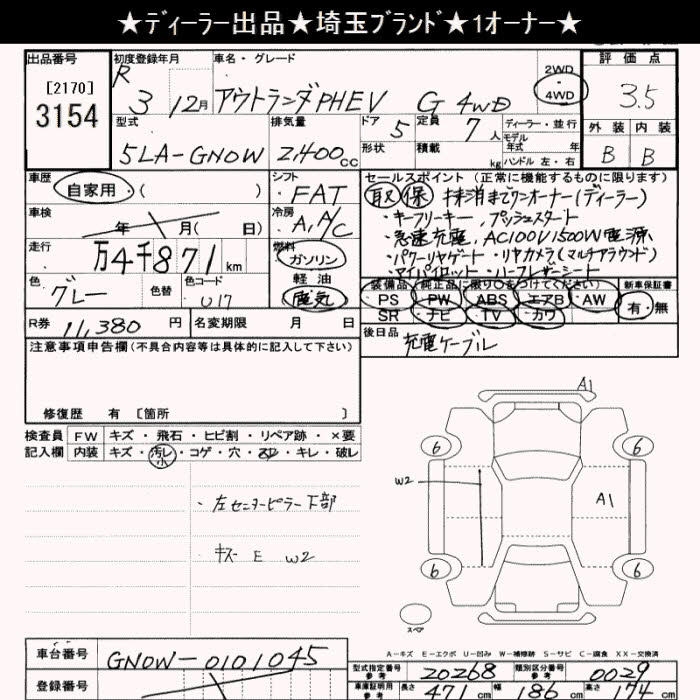 ★ディーラー出品★埼玉ブランド★1オーナー★
出品番号 [2170] 3154
初度登録年月 R 3 12月
車名・グレード アウトランダPHEV G 4WD
2WD・4WD
評価点 3.5
外装 B 内装 B
型式 5LA-GN0W
排気量 2400cc
ドア 5 形状
定員 7人 積載 kg
ディーラー・並行
モデル年式 年式
ハンドル 左・右
車歴 自家用・( )
シフト FAT
車検 年 月( 日)
冷房 A,A/C
走行 万4千871km
燃料 ガソリン 軽油 電気
色 グレー 色替 色コード U17
R券 11,380円 名変期限 月 日
セールスポイント(正常に機能するものに限ります)
取 保 抹消までワンオーナー(ディーラー)
・キーフリーキー、プッシュスタート
・急速充電、AC100V1500W電源
・パワーリヤゲート・リヤカメラ(マルチアラウンド)
・マイパイロット・ハーフレザーシート
装備品(純正品に限り○をつけてください) 新車保証書
PS PW ABS エアB AW 有・無
SR ナビ TV カワ
後日品 充電ケーブル
注意事項申告欄(不具合内容等は具体的に記入して下さい)
修復歴 有 [箇所 ]
検査員 FW キズ・飛石・ヒビ割・リペア跡・×要
記入欄 内装 キズ・汚レ・コゲ・穴・スレ・キレ・破レ
小
・左センターピラー下部
・キズ E W2
A1
6 6
W2 A1
6 6
スペア
A-キズ E-エクボ U-凹み W-補修跡 S-サビ C-腐食 XX-交換済
車台番号 GN0W-0101045
登録番号
型式指定番号 参考 20268 類別区分番号 参考 0029
車庫証明用 参考 長さ 471cm 幅 186cm 高さ 74cm